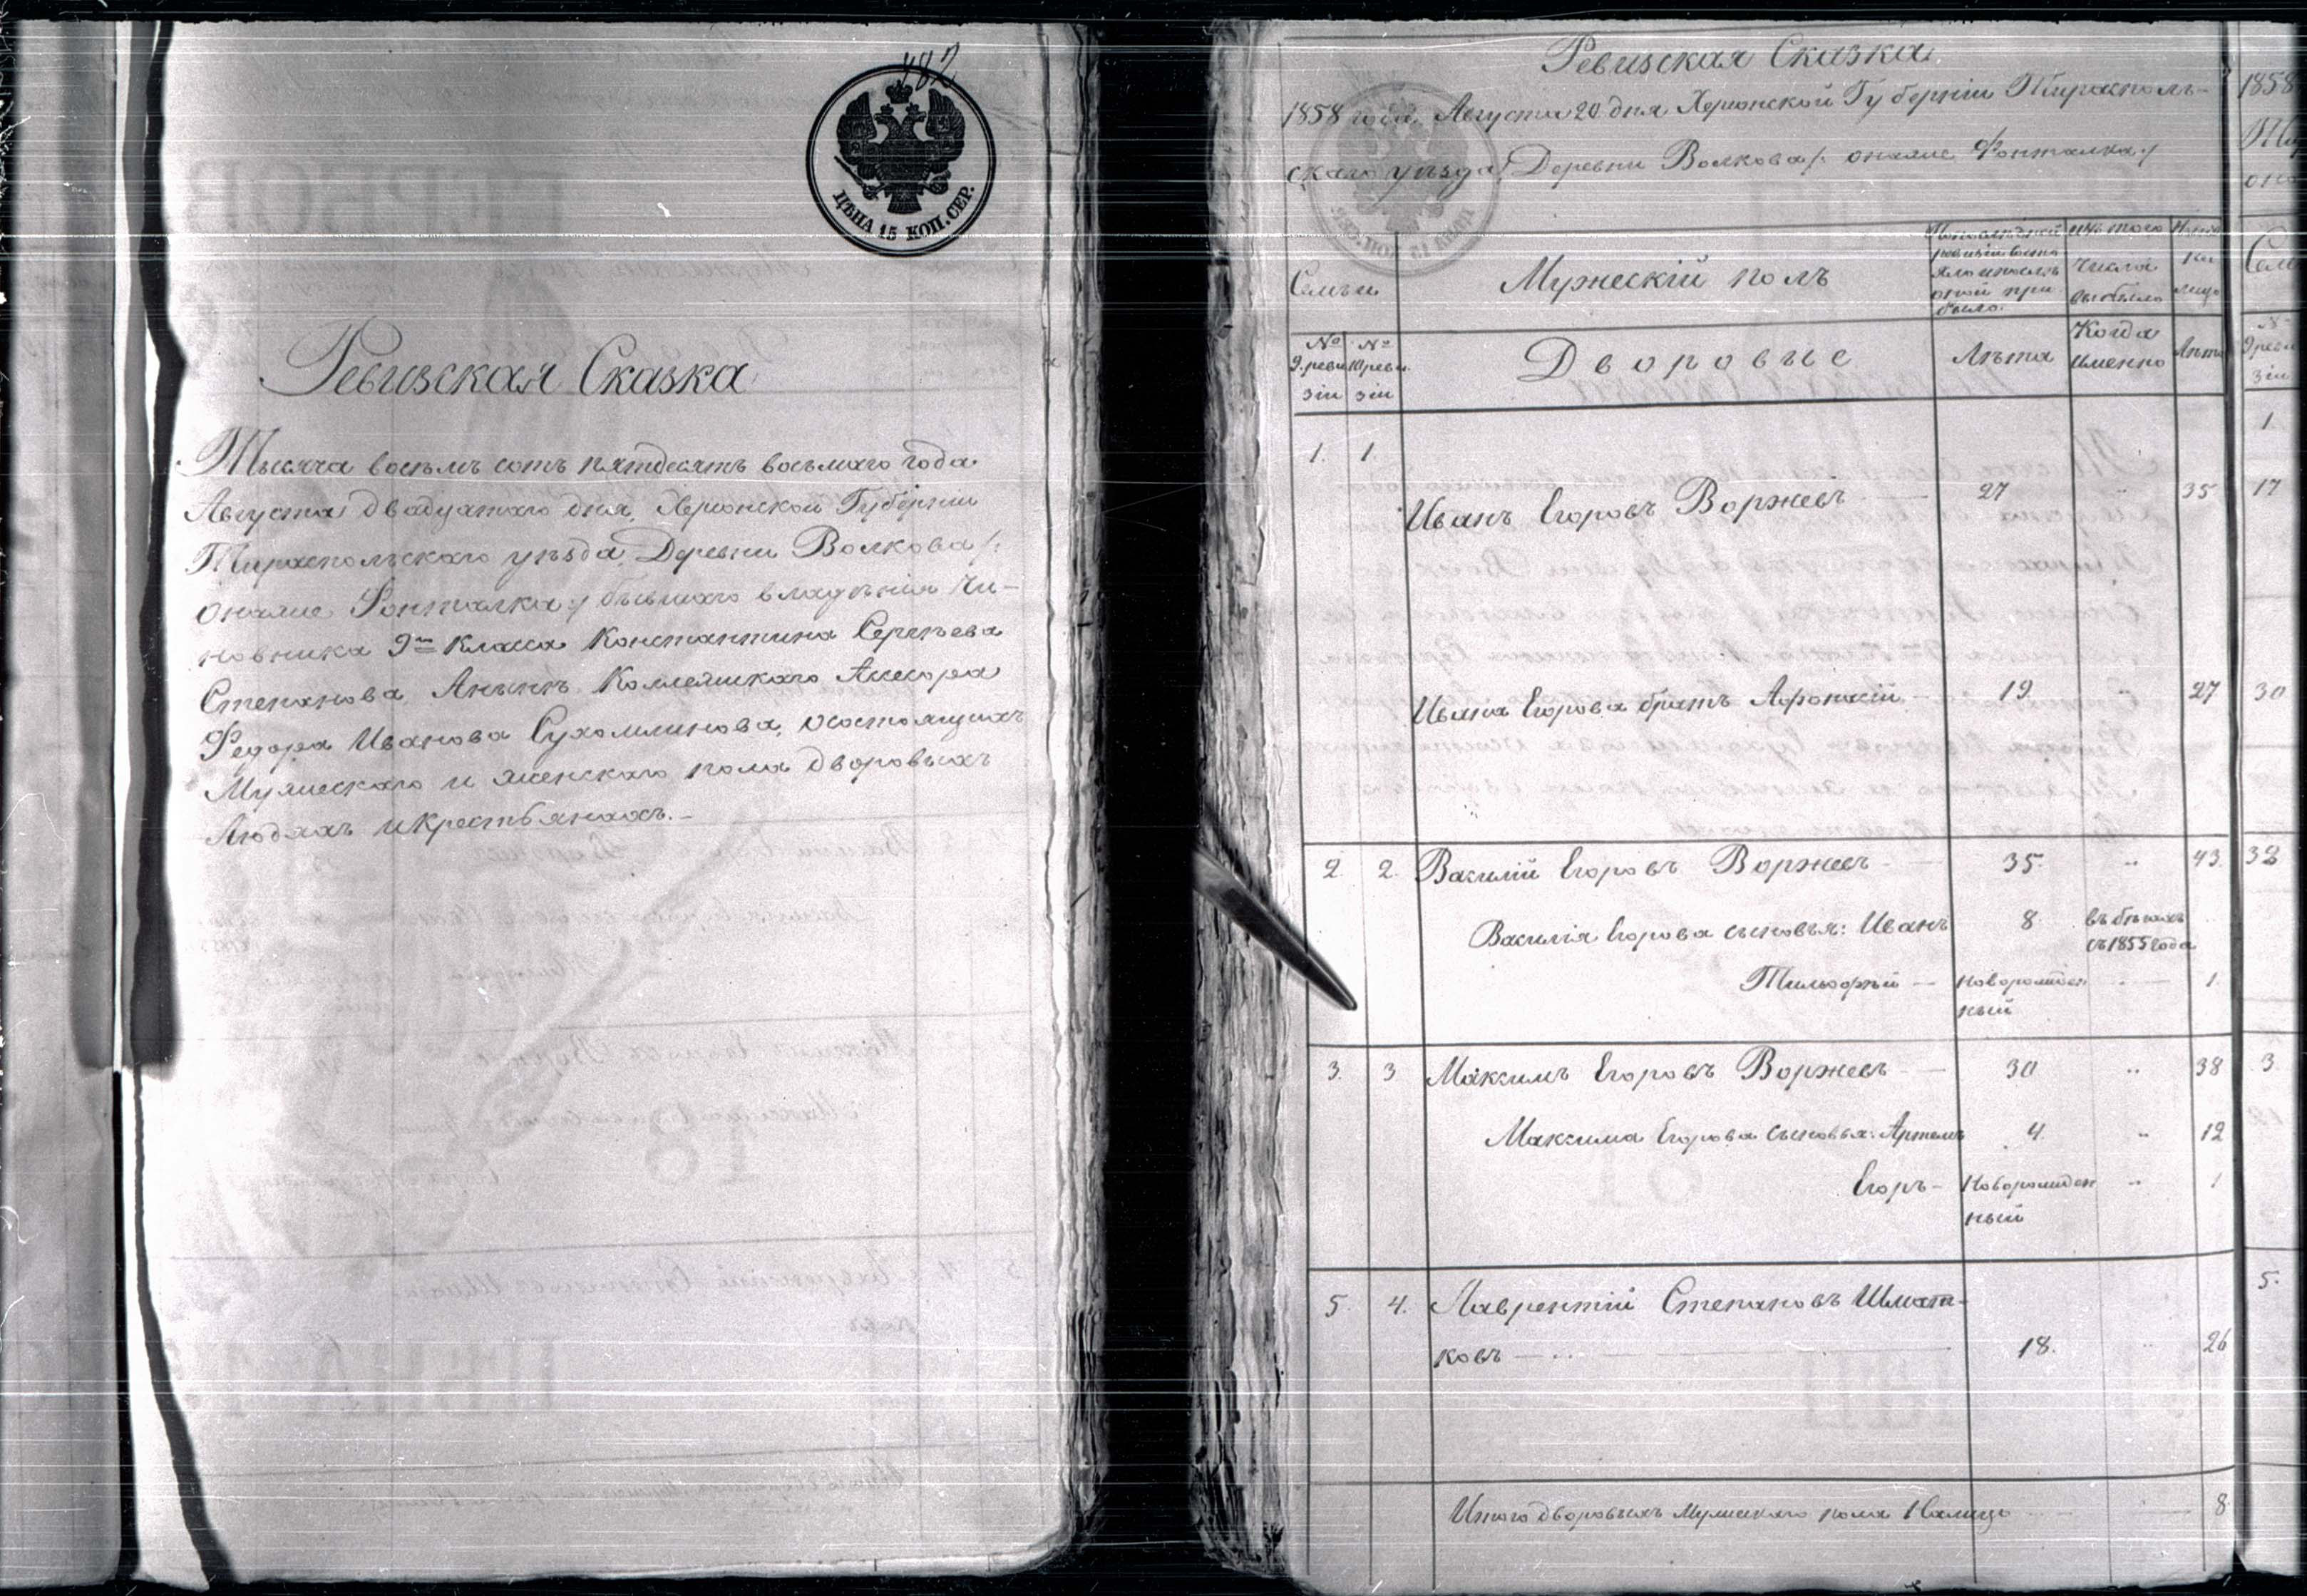 482
ЦѢНА 15 КОП. СЕР.
Ревизская Сказка
Тысяча восемь сотъ пятдесятъ восьмаго года
Августа двадцатаго дня, Херсонской Губерніи
Тираспольскаго уѣзда, Деревни Волкова /:
онаже Фонталка :/ бывшаго владѣнія Чи-
новника 9го класса Константина Сергѣева
Степанова, Анынѣ Коллежскаго Ассесора
Федора Иванова Сухомлинова, осостоящихъ
Мужескаго и женскаго пола дворовыхъ
Людяхъ и Крестьянахъ.-
Ревизская Сказка
1858 года Августа 20 дня Херсонской Губерніи Тирасполь-
скаго уѣзда, Деревни Волкова /: онаже Фонталка :/
Семьи
Мужескій полъ
По последней ревизіи состояло и послѣ оной прибыло.
Изъ того числа выбыло
Ныне на лицо
№ 9. ревизіи
№ 10 ревизіи
Дворовые
Лѣта
Когда именно
Лѣта
1. 1.
Иванъ Егоровъ Воржевъ 27 " 35
Ивана Егорова братъ Афонасій 19. " 27
2. 2. Василій Егоровъ Воржевъ 35. " 43.
Василія Егорова сыновья: Иванъ 8. въ бѣгахъ
съ 1855 года
Тимофѣй — новорожден " — 1.
ный
3. 3 Максимъ Егоровъ Воржевъ — 30 " 38
Максима Егорова сыновья: Артемъ 4. " 12
Егоръ — Новорожден " 1
ный
5. 4. Лаврентій Степановъ Шмат-
ковъ — 18. " 26
Итого дворовыхъ Мужескаго пола Налицо — 8
1858
1
17
30
38
3
5.